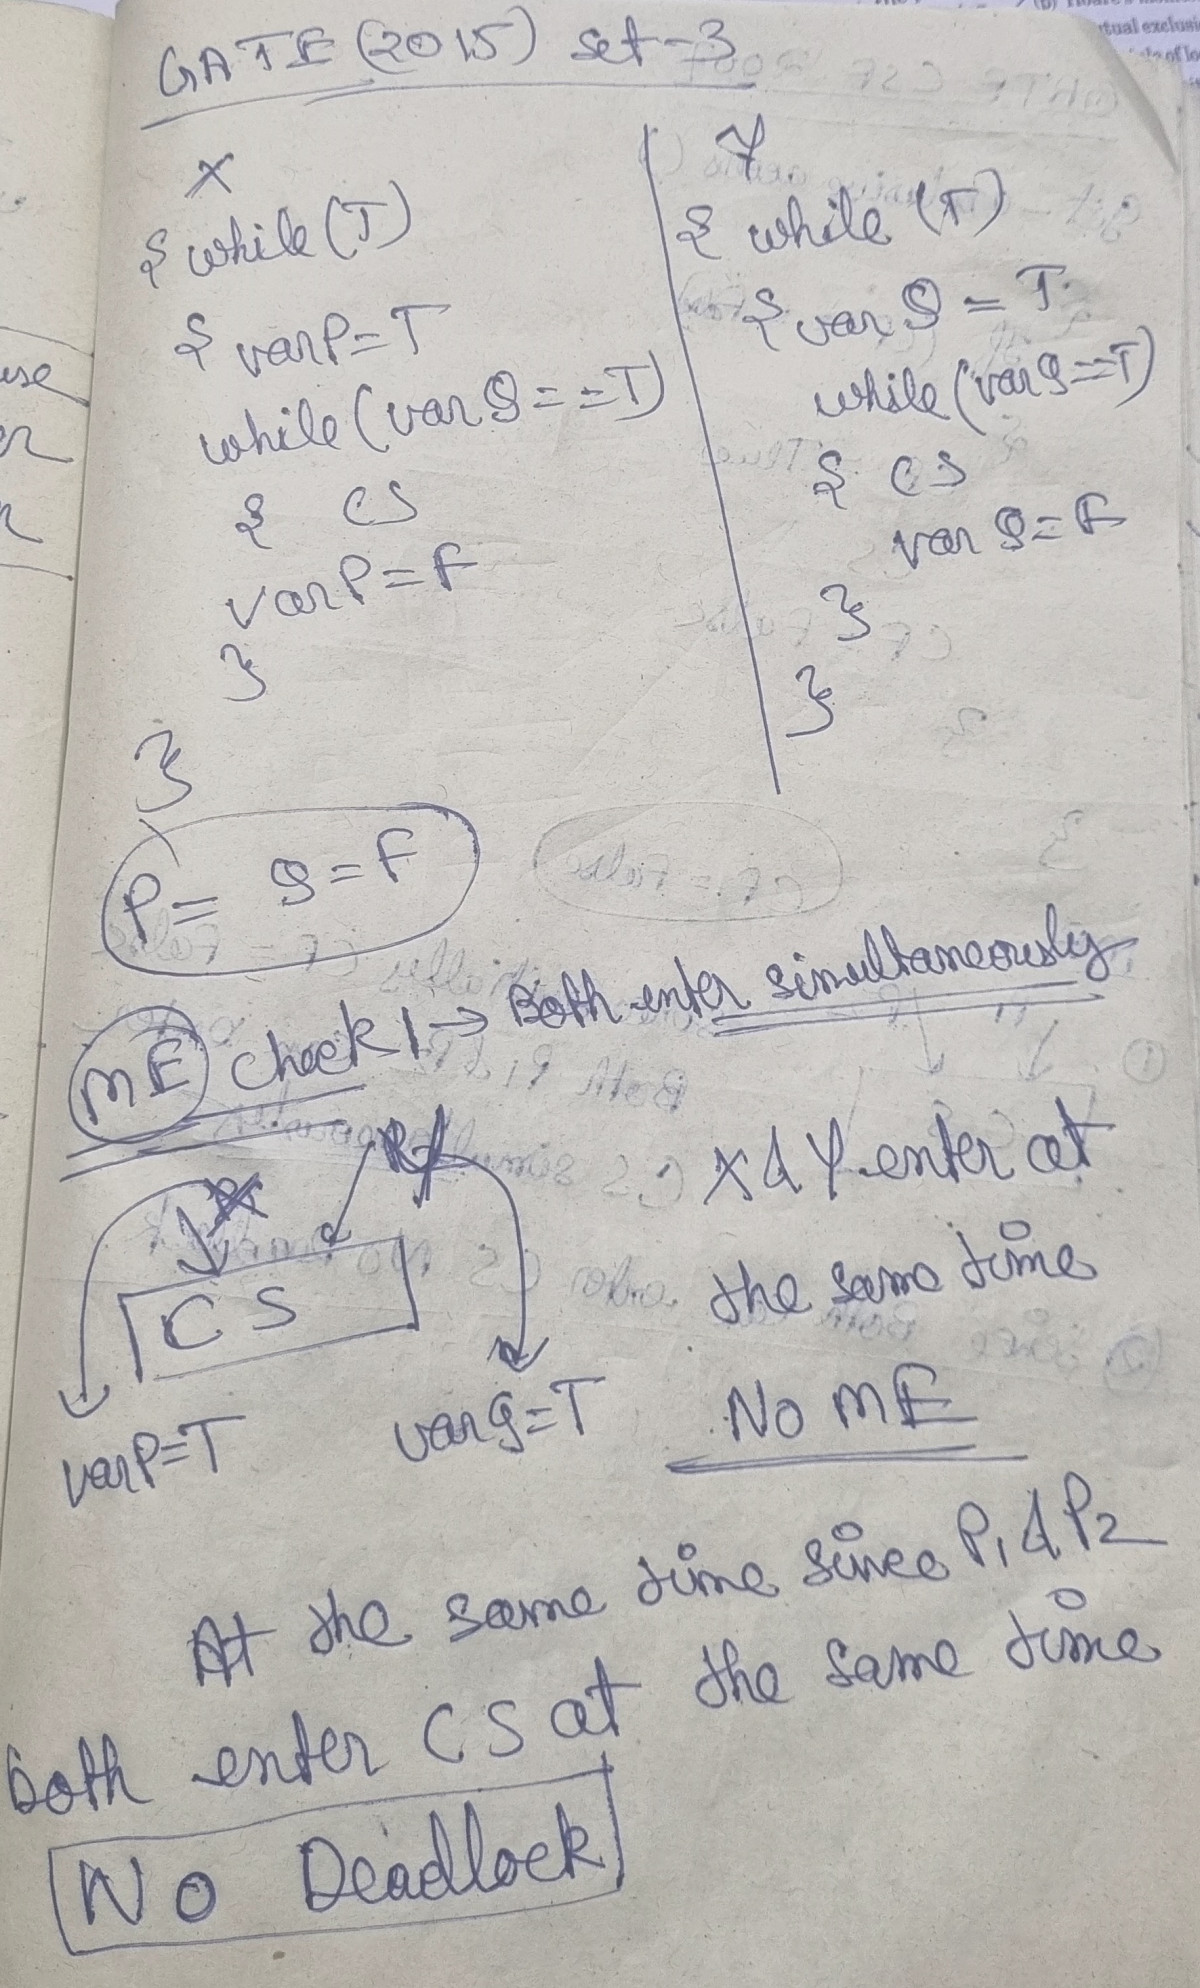 GATE (2015) set-3
X
{ while (T)
{ varP=T
while (var Q = = T)
{ CS
varP=F
}
}
Y
{ while (T)
{ var Q = T
while (varQ==T)
{ CS
var Q=F
}
}
P= Q=F
ME check 1 → Both enter simultaneously
X & Y enter at
the same time
CS
varP=T varQ=T
No ME
At the same time since P1 & P2
both enter CS at the same time
No Deadlock